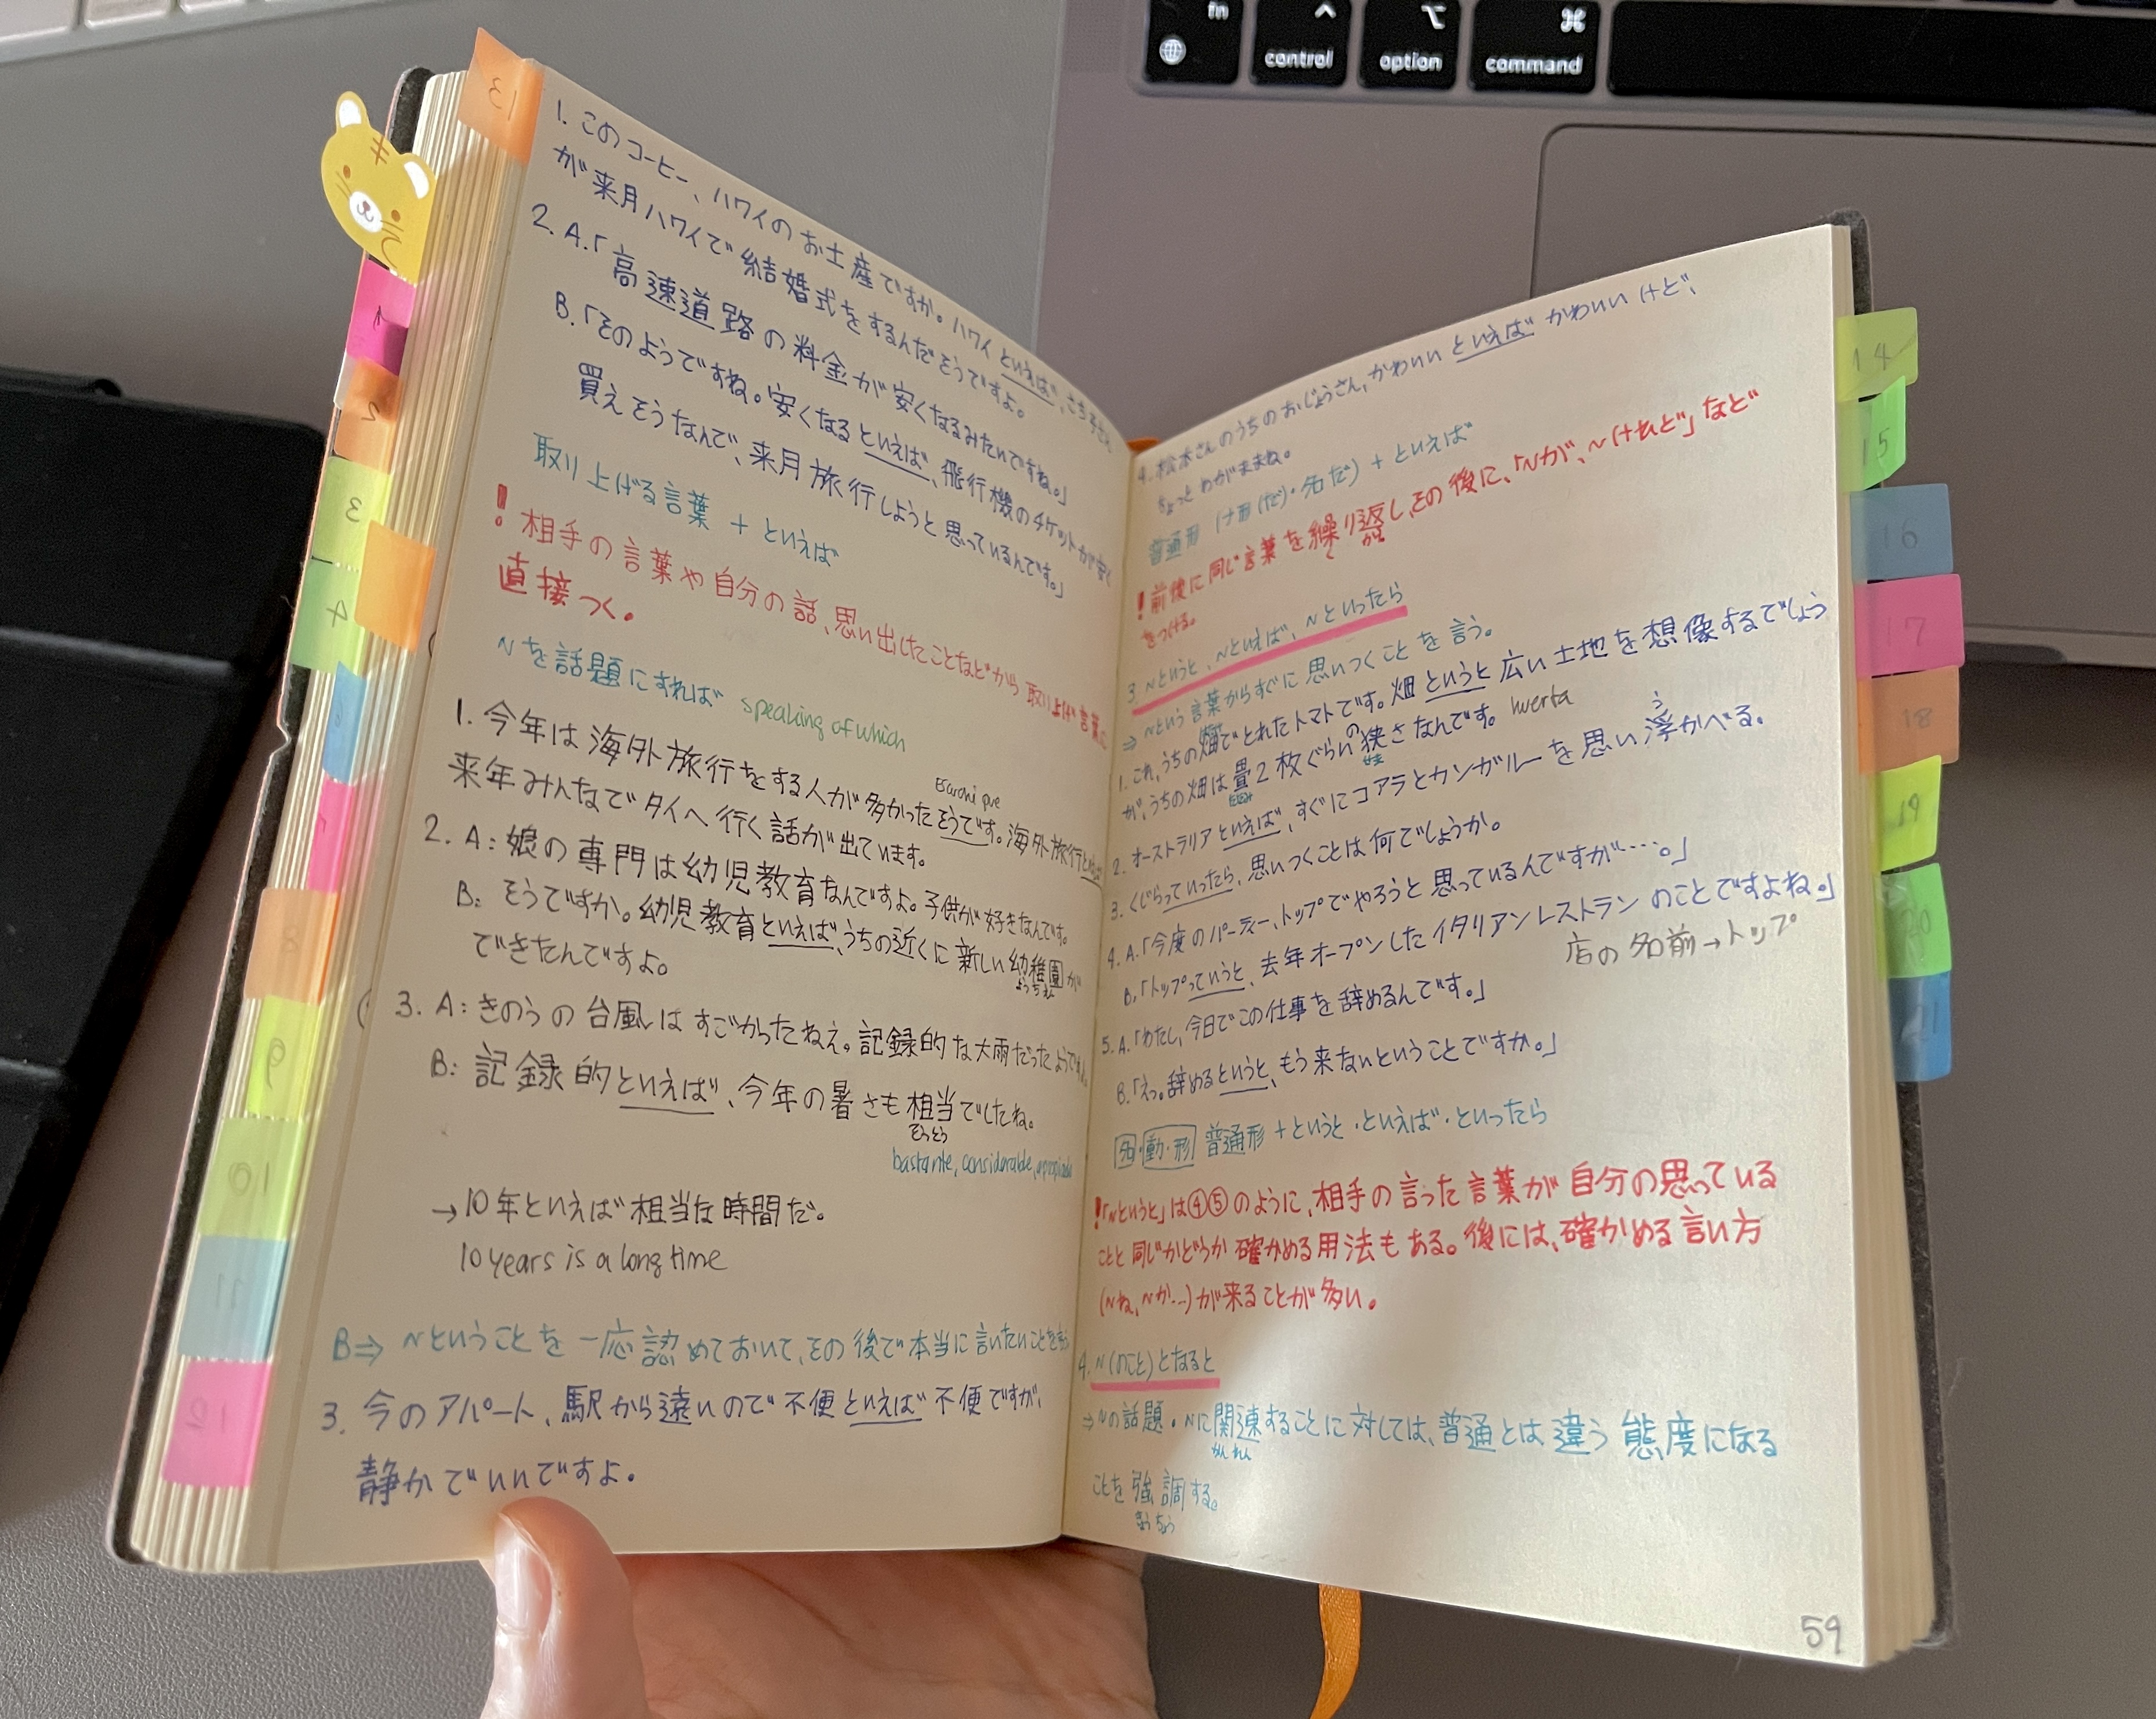 fn
control
option
⌘
command
13
1. このコーヒー、ハワイのお土産ですか。ハワイといえば、さち子さん
が来月ハワイで結婚式をするんだそうですよ。
2. A.「高速道路の料金が安くなるみたいですね。」
B.「そのようですね。安くなるといえば、飛行機のチケットが安く
買えそうなんで、来月旅行しようと思っているんです。」
取り上げる言葉 + といえば
! 相手の言葉や自分の話、思い出したことなどから取り上げ言葉に
直接つく。
〜を話題にすれば speaking of which
1. 今年は海外旅行をする人が多かったそうです。海外旅行といえば
来年みんなでタイへ行く話が出ています。
2. A: 娘の専門は幼児教育なんですよ。子供が好きなんです。
B: そうですか。幼児教育といえば、うちの近くに新しい幼稚園が
ようちえん
できたんですよ。
3. A: きのうの台風はすごかったねえ。記録的な大雨だったようです
B: 記録的といえば、今年の暑さも相当でしたね。
そうとう
bastante, considerable, apropiado
→10年といえば相当な時間だ。
10 years is a long time
B⇒ 〜ということを一応認めておいて、その後で本当に言いたいことを言う
3. 今のアパート、駅から遠いので不便といえば不便ですが、
静かでいいですよ。
4. 松本さんのうちのおじょうさん、かわいいといえばかわいいけど、
ちょっとわがままね。
普通形 (ナ形(だ)・名だ) + といえば
! 前後に同じ言葉を繰り返し、その後に、「〜が、〜けれど」など
く かえ
をつける。
3 〜というと、〜といえば、〜といったら
⇒ 〜という言葉からすぐに思いつくことを言う。
1. これ、うちの畑でとれたトマトです。畑というと広い土地を想像するでしょう
が、うちの畑は畳2枚ぐらいの狭さなんです。 huerta
たたみ せま
2. オーストラリアといえば、すぐにコアラとカンガルーを思い浮かべる。
う
3. くじらっていったら、思いつくことは何でしょうか。
4. A.「今度のパーティー、トップでやろうと思っているんですが……。」
B.「トップっていうと、去年オープンしたイタリアンレストランのことですよね。」
店の名前→トップ
5. A.「わたし、今日でこの仕事を辞めるんです。」
B.「えっ。辞めるというと、もう来ないということですか。」
名・動・形 普通形 + というと・といえば・といったら
!「〜というと」は④⑤のように、相手の言った言葉が自分の思っている
ことと同じかどうか確かめる用法もある。後には、確かめる言い方
(〜ね、〜か...)が来ることが多い。
4. 〜(のこと)となると
⇒ 〜の話題・〜に関連することに対しては、普通とは違う態度になる
かんれん
ことを強調する。
きょうちょう
59
1
2
3
4
8
9
10
11
12
14
15
16
17
18
19
20
21